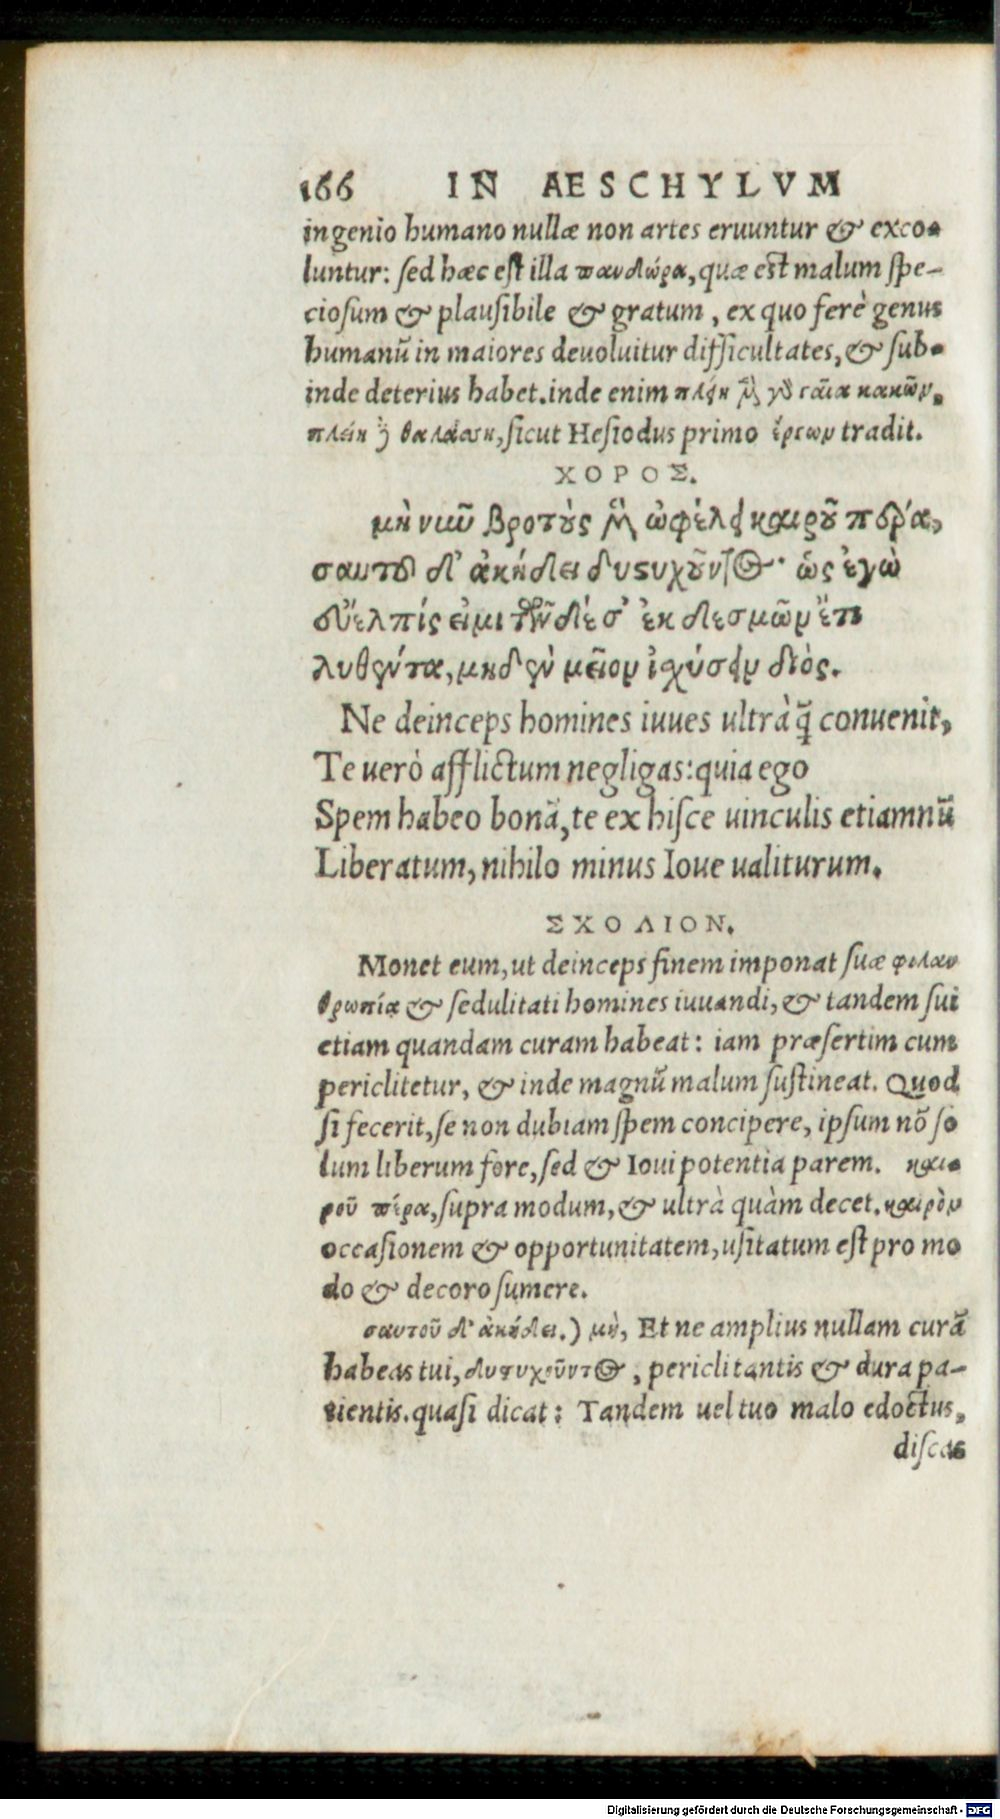 166 IN AESCHYLVM
ingenio humano nullæ non artes eruuntur & exco-
luntur: sed hæc est illa πανδώρα, quæ est malum spe-
ciosum & plausibile & gratum, ex quo ferè genus
humanũ in maiores deuoluitur difficultates, & sub-
inde deterius habet. inde enim πλείη μὲν γὸ γαῖα κακῶν,
πλείη δὲ θαλάσση, sicut Hesiodus primo ἔργων tradit.
ΧΟΡΟΣ.
μὴ νῦν βροτὸς μὲν ὠφέλει καιροῦ πέρα,
σαυτοῦ δ' ἀκήδει δυστυχοῦντος· ὡς ἐγὼ
εὔελπίς εἰμι τῶνδέ σ' ἐκ δεσμῶν ἔτι
λυθέντα, μηδὲν μεῖον ἰχύσειν διός.
Ne deinceps homines iuues ultrà q̃ conuenit,
Te uerò afflictum negligas: quia ego
Spem habeo bonã, te ex hisce uinculis etiamnũ
Liberatum, nihilo minus Ioue ualiturum.
ΣΧΟΛΙΟΝ.
Monet eum, ut deinceps finem imponat suæ φιλαν
θρωπίᾳ & sedulitati homines iuuandi, & tandem sui
etiam quandam curam habeat: iam præsertim cum
periclitetur, & inde magnũ malum sustineat. Quod
si fecerit, se non dubiam spem concipere, ipsum nõ so
lum liberum fore, sed & Ioui potentia parem. και-
ροῦ πέρα, supra modum, & ultrà quàm decet. καιρὸν
occasionem & opportunitatem, usitatum est pro mo
do & decoro sumere.
σαυτοῦ δ' ἀκήδει.) μὴ, Et ne amplius nullam curã
habeas tui, δυστυχοῦντος, periclitantis & dura pa-
tientis. quasi dicat: Tandem uel tuo malo edoctus,
discas
Digitalisierung gefördert durch die Deutsche Forschungsgemeinschaft - DFG